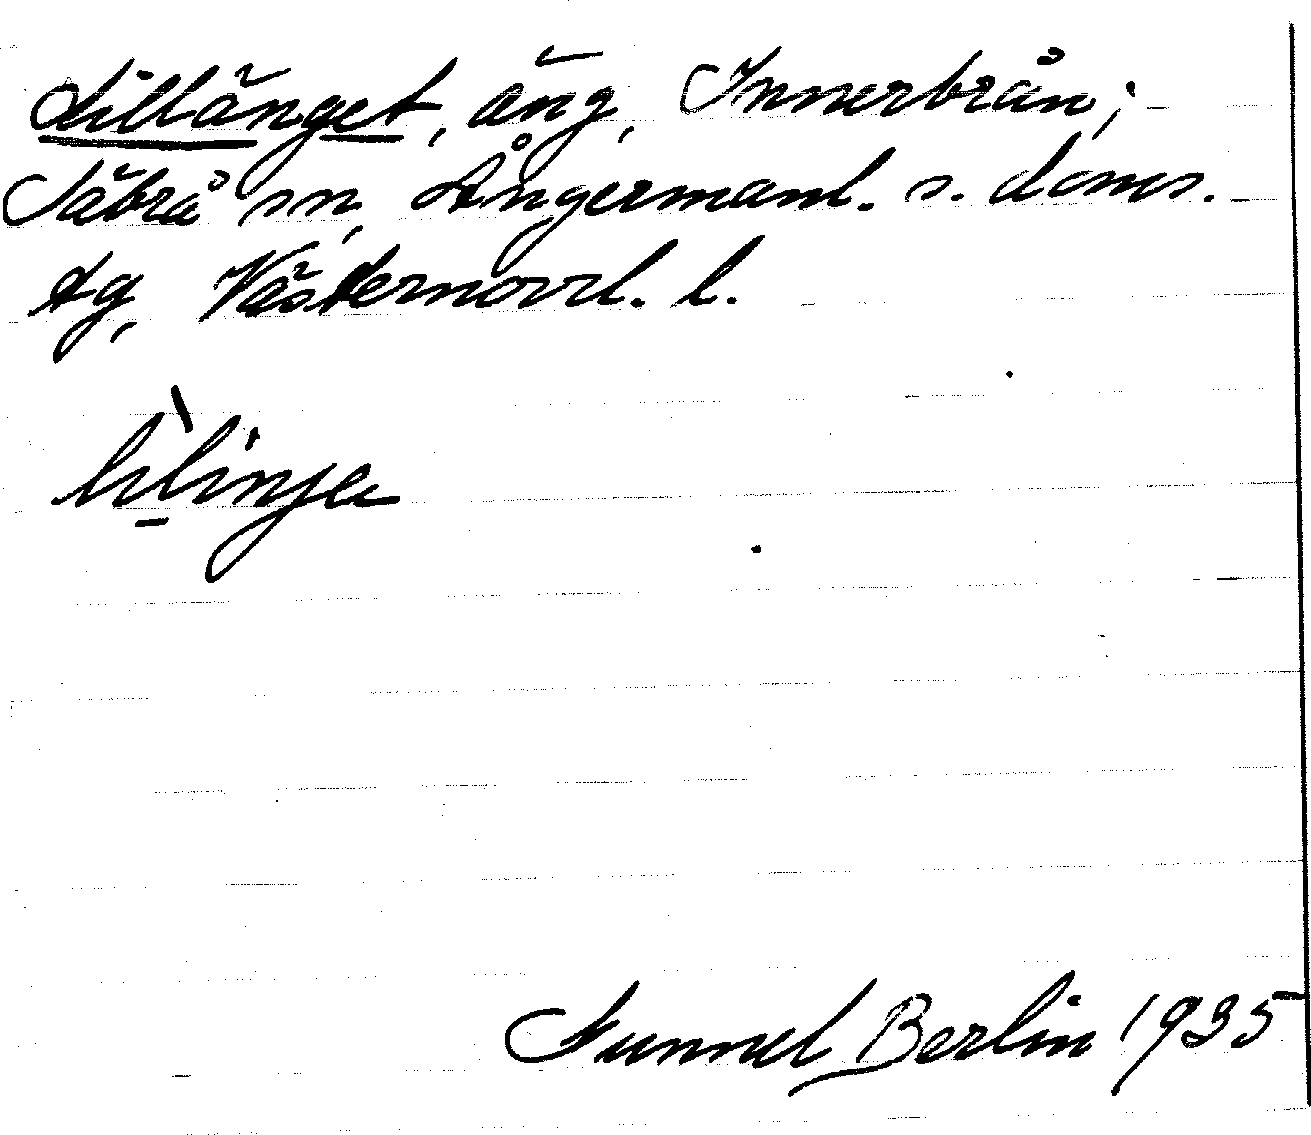 Lillänget, äng, Innerbrån;
Säbrå sn, Ångermanl. s. doms.
tg, Västernorrl. l.
Gunnel Berlin 1935